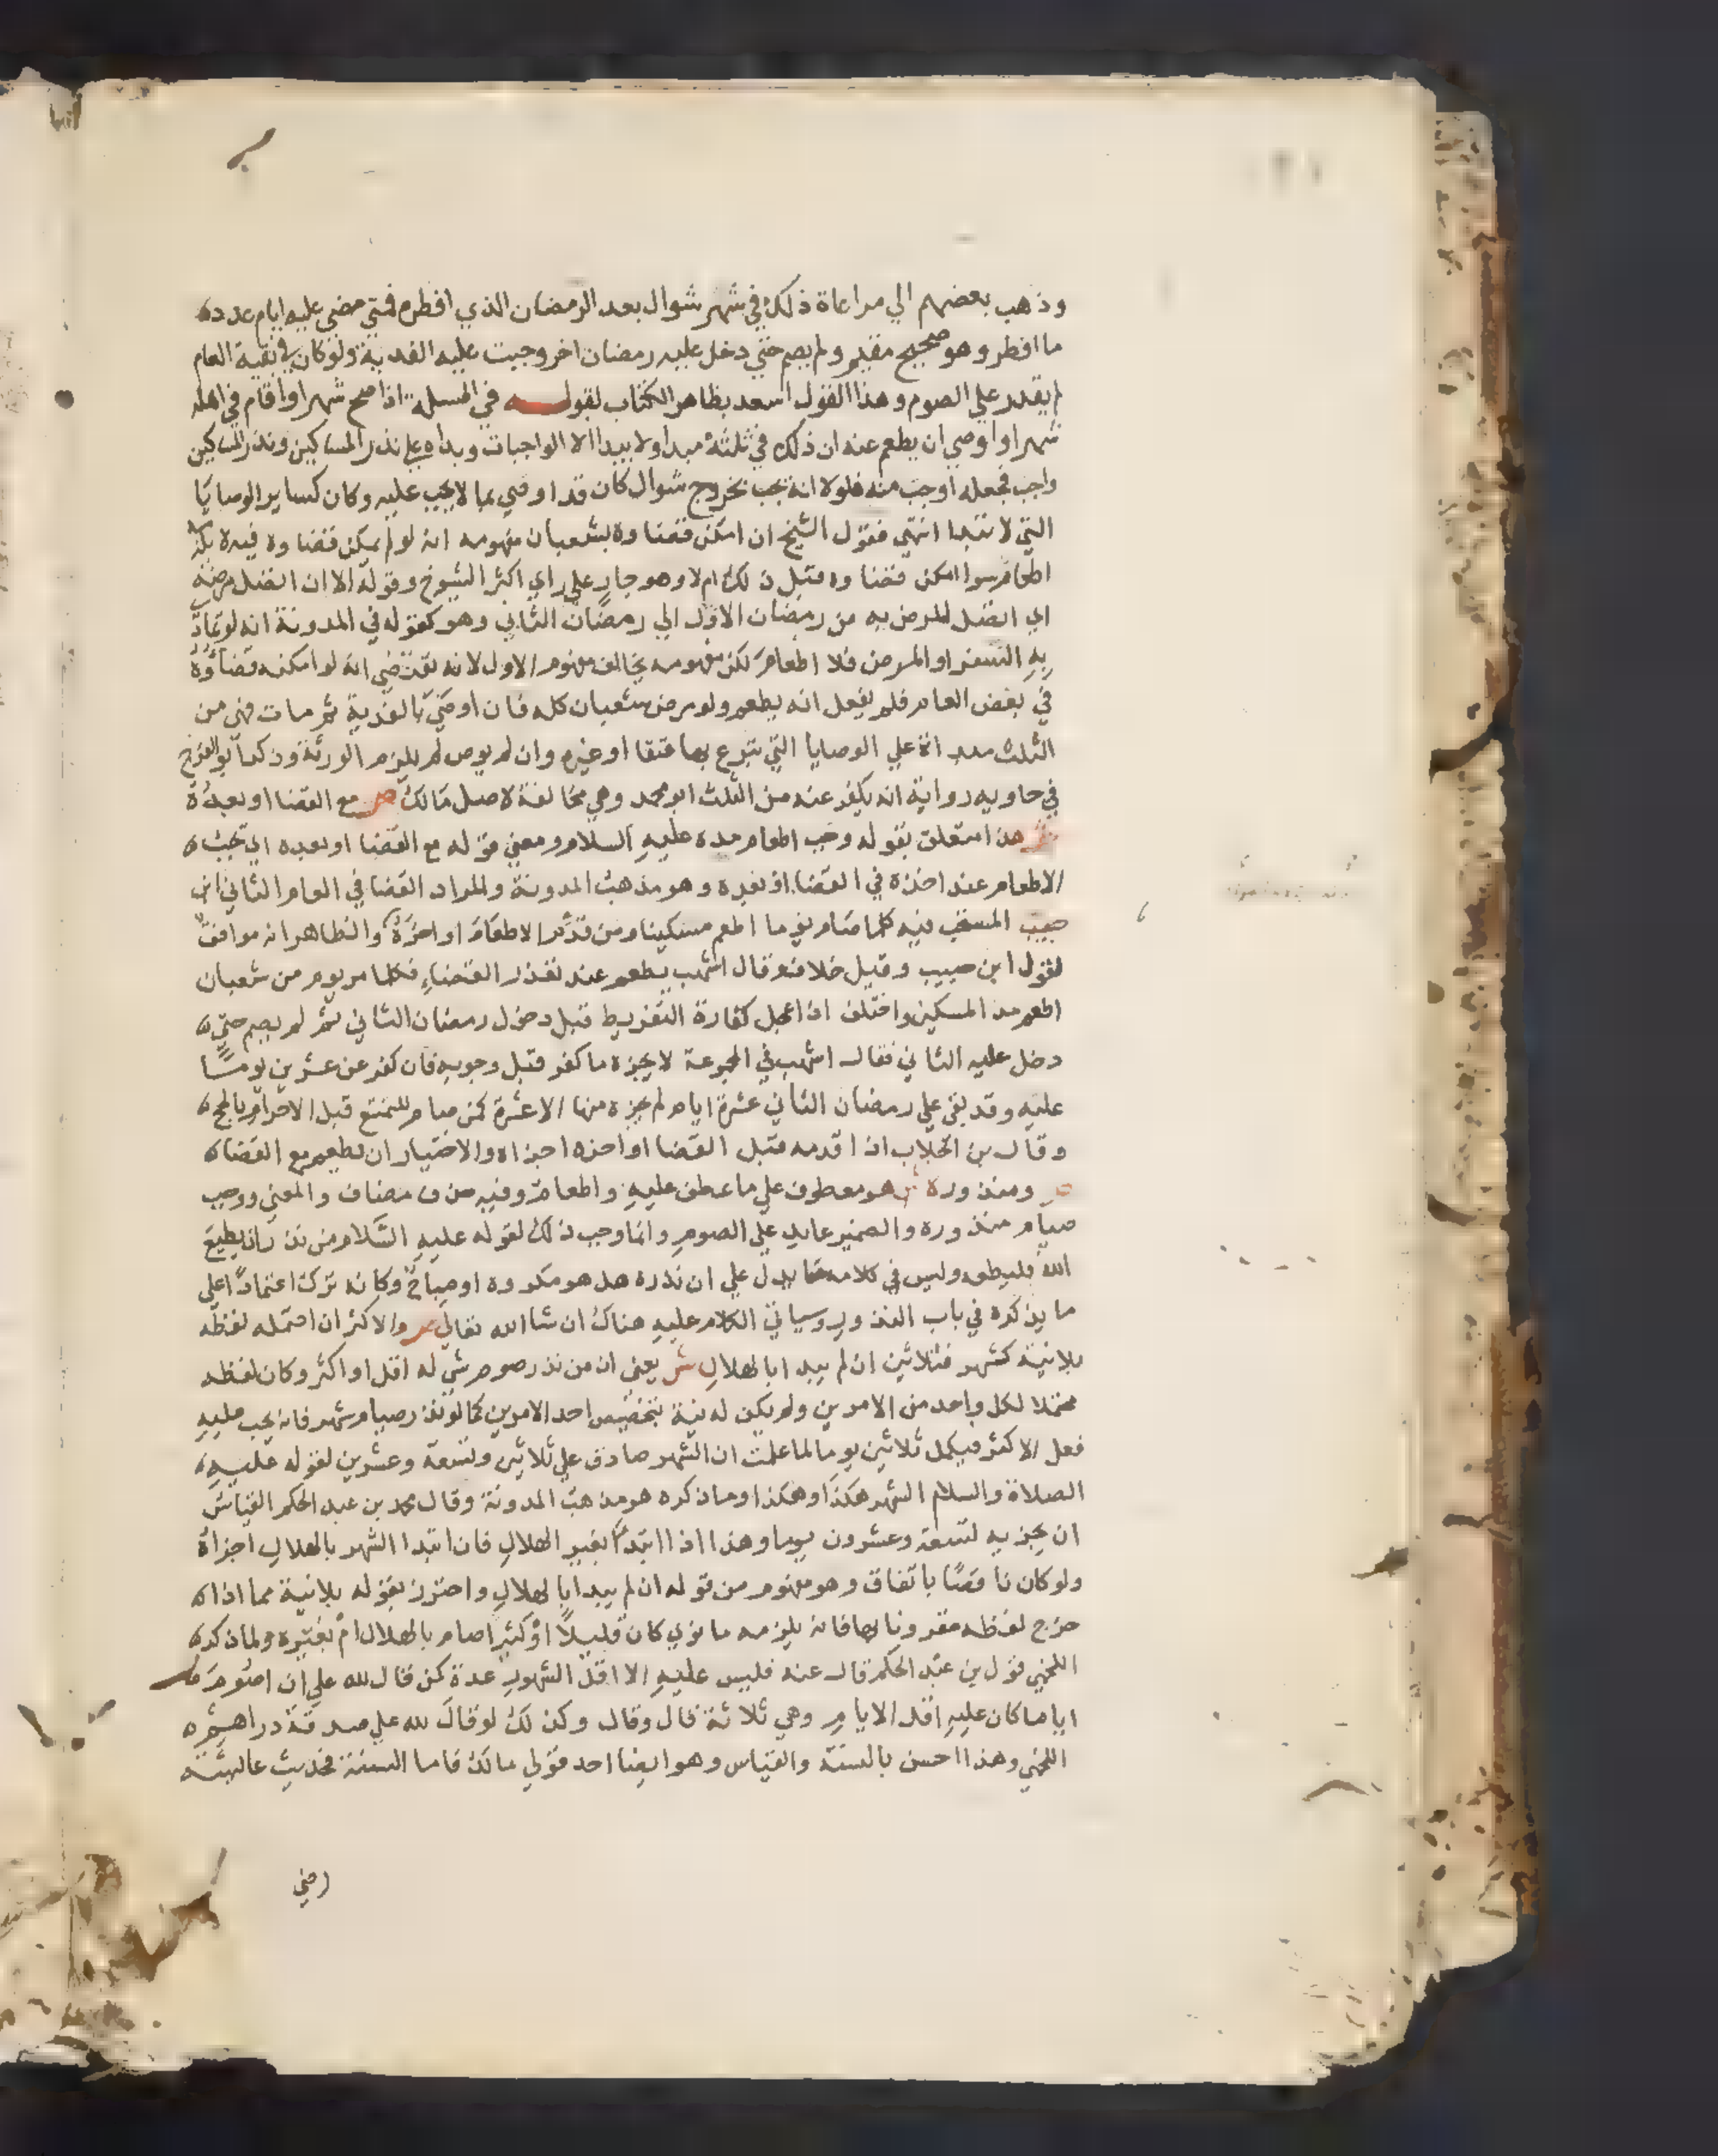 وذهب بعضهم الي مراعاة ذلك في شهر شوال بعد الرمضان الذي افطره فمتي مضي عليه ايام عدده
ما افطر وهو صحيح مقيم ولم يصم حتي دخل عليه رمضان اخر وجبت عليه الفدية ولو كان في بقية العام
لم يقدر علي الصوم وهذا القول اسعد بظاهر الكتاب لقوله في المسلة اذا صح شهرا او اقام في اهله
شهرا واوصي ان يطعم عنه ان ذلك في ثلثة مبدا ولا يبدا الا الواجبات وبداه علي نذر المساكين ونذر المساكين
واجب فجعله اوجب منه فلولا انه يجب بخروج شوال كان قد اوصي بما لا يجب عليه وكان كساير الوصايا
التي لا تبدا انتهي فقول الشيخ ان امكن قضاوه بشعبان مفهومه انه لو لم يمكن قضاوه فيه لا يلزمه
اطعام سوا امكن قضاوه قبل ذلك ام لا وهو جار علي راي اكثر الشيوخ وقوله الا ان اتصل مرضه
اي اتصل المرض به من رمضان الاول الي رمضان الثاني وهو كقوله في المدونة انه لو تمادي
به السفر او المرض فلا اطعام لكن مفهومه يخالف مفهوم الاول لانه يقتضي انه لو امكنه قضاؤه
في بعض العام فلم يفعل انه يطعم ولو مرض شعبان كله فان اوصي بالفدية ثم مات فهي من
الثلث مبداة علي الوصايا التي تبرع بها عتقا او غيره وان لم يوص لم يلزم الورثة وذكر ابو الفرج
في حاويه رواية انه يكفر عنه من الثلث ابو محمد وهي مخالفة لاصل مالك ص مع القضا او بعده
ش هذا متعلق بقوله وجب اطعام مده عليه السلام ومعني قوله مع القضا او بعده اي يجب
الاطعام عند اخذه في القضا او بعده وهو مذهب المدونة والمراد القضا في العام الثاني ابن
حبيب المستحب فيه كلما صام يوما اطعم مسكينا ومن قدم الاطعام او اخره والظاهر انه موافق
لقول ابن حبيب وقيل خلاف وقال اشهب يطعم عند تعذر القضاء فكلما مر يوم من شعبان
اطعم مد المسكين واختلف اذا عجل كفارة التفريط قبل دخول رمضان الثاني ثم لم يصم حتي
دخل عليه الثاني فقال اشهب في المجموعة لا يجزه ما كفر قبل وجوبه فان كفر عن عشرين يوما
عليه وقد بقي علي رمضان الثاني عشرة ايام لم يجزه منها الا عشرة كمن صام للتمتع قبل الاحرام بالحج
وقال بن الجلاب اذا قدمه قبل القضا او اخره اجزاه والاختيار ان يطعم مع القضا
ص ومنذوره ش هو معطوف علي ما عطف عليه واطعام وفيه حذف مضاف والمعني ووجب
صيام منذوره والضمير عايد علي الصوم وانما وجب ذلك لقوله عليه السلام من نذر ان يطيع
الله فليطعه وليس في كلامه ما يدل علي ان نذره هل هو مكروه او مباح وكانه ترك اعتمادا علي
ما يذكره في باب النذور وسياتي الكلام عليه هناك ان شا الله تعالي ص والاكثر ان احتمله لفظه
بلانية كشهر فثلاثين ان لم يبدا بالهلال ش يعني ان من نذر صوم شي له اقل او اكثر وكان لفظه
محتملا لكل واحد من الامرين ولم يكن له نية بتخصيص احد الامرين كما لو نذر صيام شهر فانه يجب عليه
فعل الاكثر فيكمل ثلاثين يوما لما علمت ان الشهر صادق علي ثلاثين وتسعة وعشرين لقوله عليه
الصلاة والسلام الشهر هكذا وهكذا وما ذكره هو مذهب المدونة وقال محمد بن عبد الحكم القياس
ان يجزيه لتسعة وعشرون يوما وهذا اذا ابتدا بغير الهلال فان ابتدا الشهر بالهلال اجزاه
ولو كان ناقصا باتفاق وهو مفهوم من قوله ان لم يبدا بالهلال واحترز بقوله بلانية مما اذا
خرج لفظه مقرونا بها فانه يلزمه ما نوي كان قليلا او كثيرا صام بالهلال ام بغيره ولما ذكر
اللخمي قول بن عبد الحكم قال عنه فليس عليه الا اقل الشهور عدة كمن قال لله علي ان اصوم
اياما كان عليه اقل الايام وهي ثلاثة قال وقال وكذلك لو قال لله علي صدقة دراهم
اللخمي وهذا احسن بالسنة والقياس وهو ايضا احد قولي مالك فاما السنة فحديث عايشة
رضي